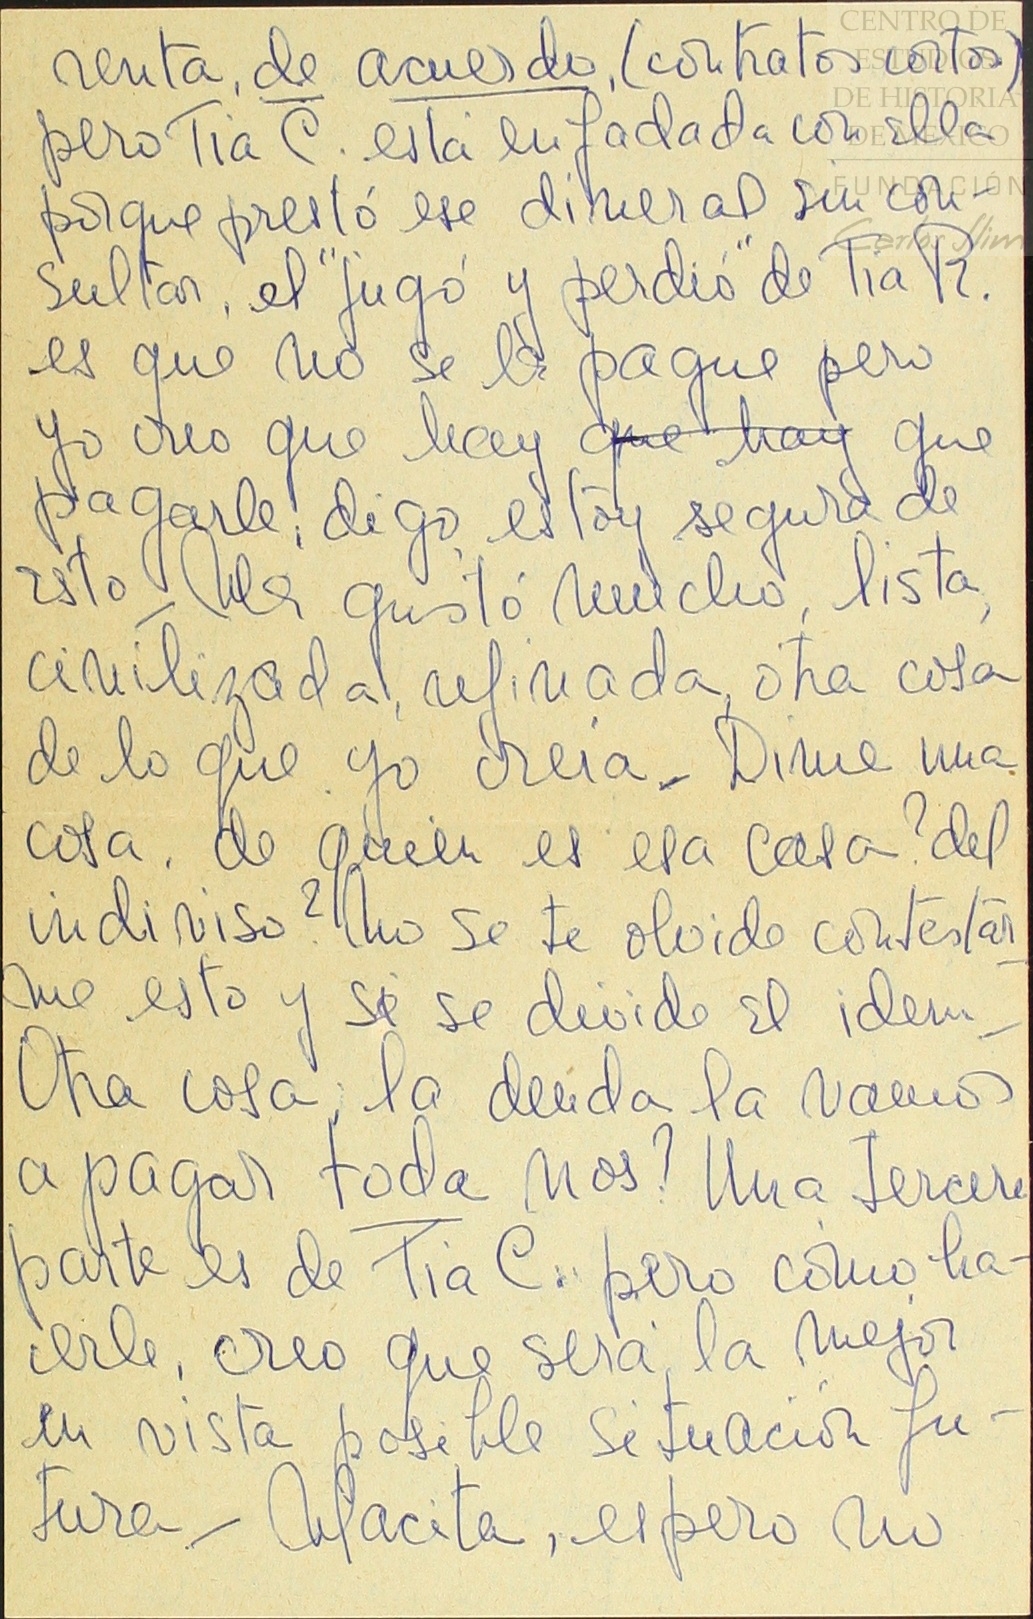 CENTRO DE
ESTUDIOS
DE HISTORIA
DE MEXICO
FUNDACIÓN
Carlos Slim
renta, de acuerdo, (contratos cortos)
pero Tia C. está enfadada con ella
porque prestó ese dineral sin con-
sultar, el "jugó y perdió" de Tia R.
es que no se le pague pero
yo creo que hay que hay que
pagarle, digo, estoy segura de
esto_ Me gustó mucho, lista,
civilizada, refinada, otra cosa
de lo que yo creía_ Dime una
cosa, de quien es esa casa? del
indiviso? No se te olvide contestar
me esto y si se divide el idem_
Otra cosa, la deuda la vamos
a pagar toda nos? Una tercera
parte es de Tia C. pero cómo ha-
cerle, creo que será la mejor
en vista posible situación fu-
tura_ Macita, espero no